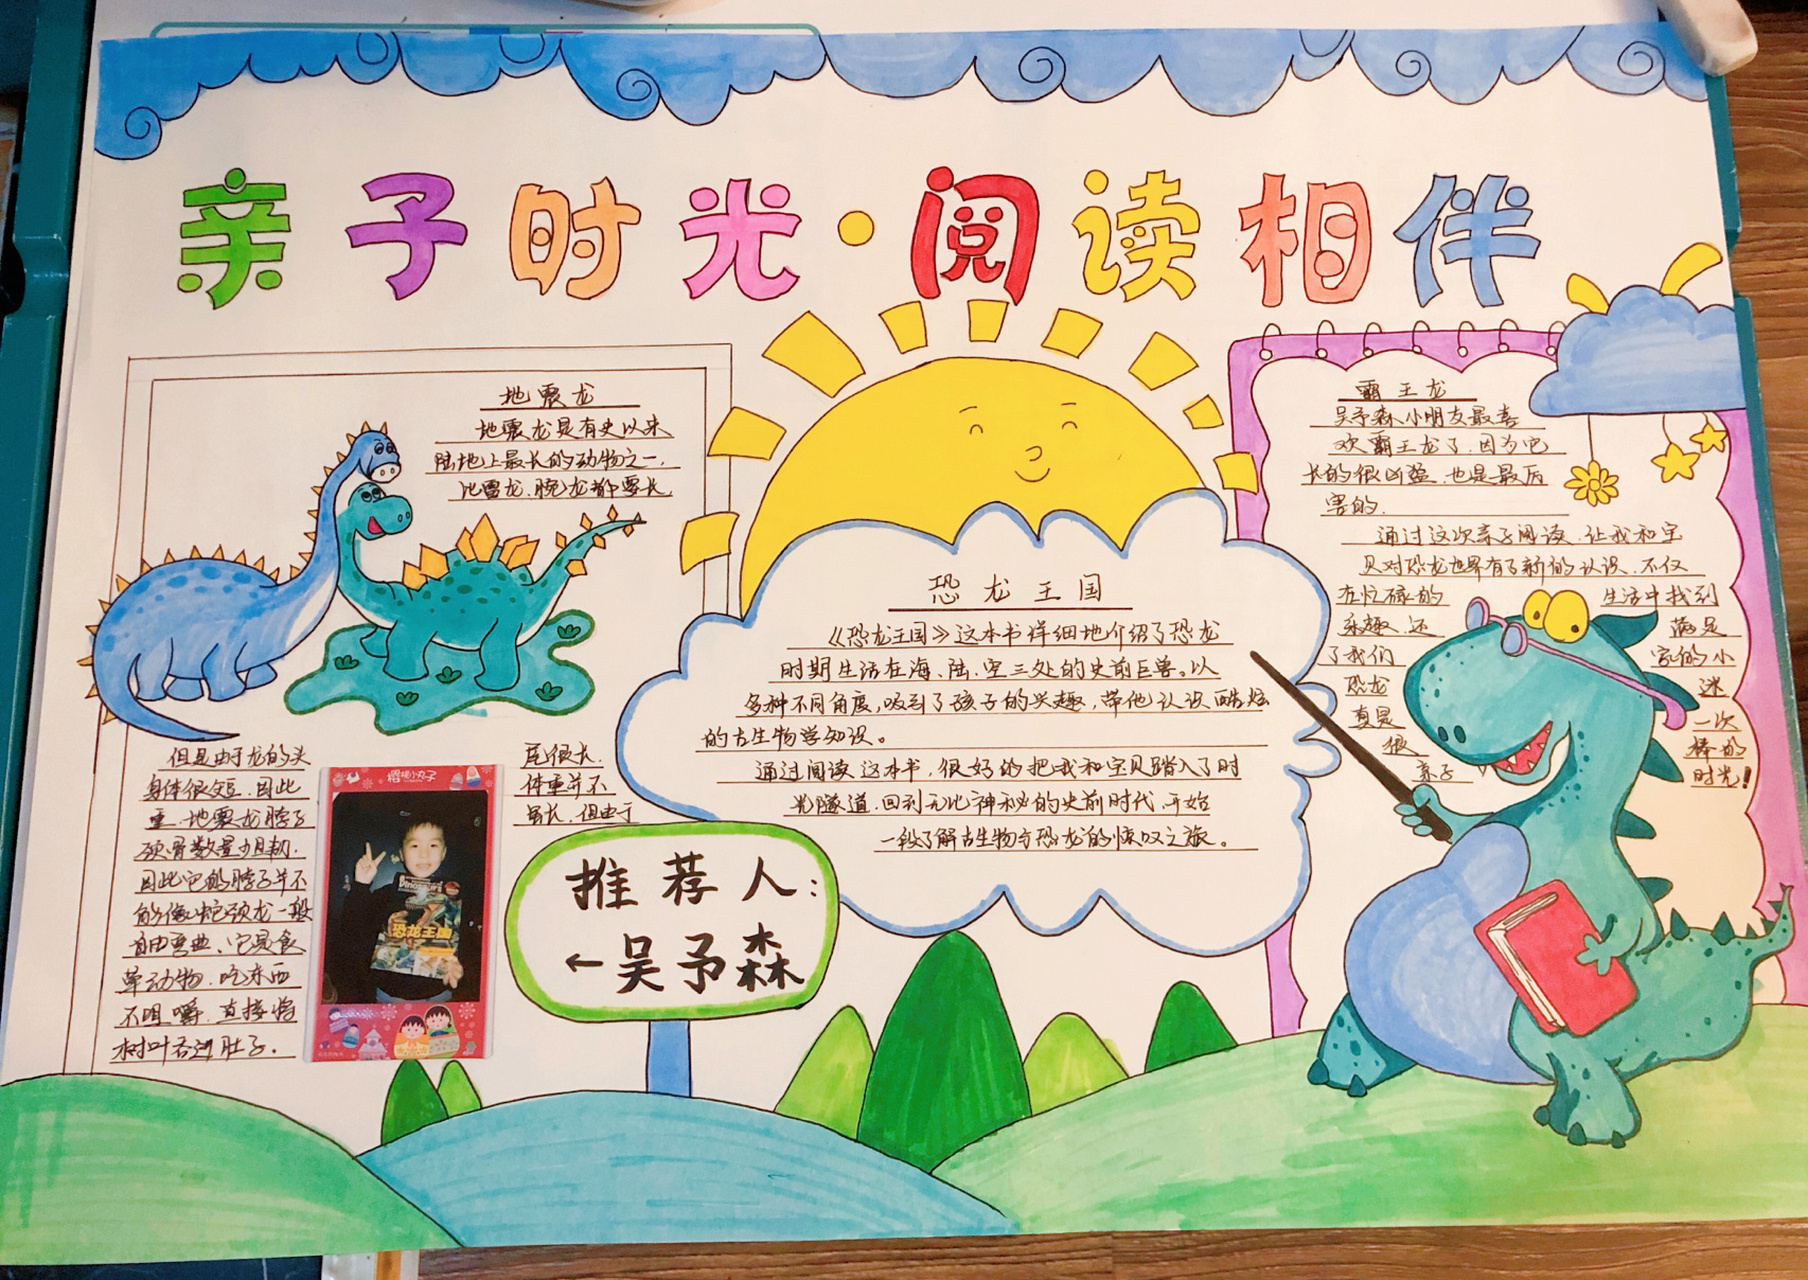 亲子时光·阅读相伴
地震龙
地震龙是有史以来
陆地上最长的动物之一,
比雷龙、腕龙都要长,
但是由于龙的头
尾很长,
身体很短,因此
体重并不
重,地震龙脖子
虽长,但由于
颈骨数量少且韧,
因此它的脖子并不
能像蛇颈龙一般
自由弯曲,它是食
草动物,吃东西
不咀嚼,直接将
树叶吞进肚子。
樱桃小丸子
Dinosaurs
恐龙王国
推荐人:
←吴予森
恐龙王国
《恐龙王国》这本书详细地介绍了恐龙
时期生活在海、陆、空三处的史前巨兽。以
多种不同角度,吸引了孩子的兴趣,带他认识酷炫
的古生物学知识。
通过阅读这本书,很好的把我和宝贝踏入了时
光隧道,回到无比神秘的史前时代,开始
一段了解古生物与恐龙的惊叹之旅。
霸王龙
吴予森小朋友最喜
欢霸王龙了,因为它
长的很凶猛,也是最厉
害的.
通过这次亲子阅读,让我和宝
贝对恐龙世界有了新的认识,不仅
在忙碌的 生活中找到
乐趣,还 满足
了我们 家的小
恐龙 迷
真是 一次
很 棒的
亲子 时光!